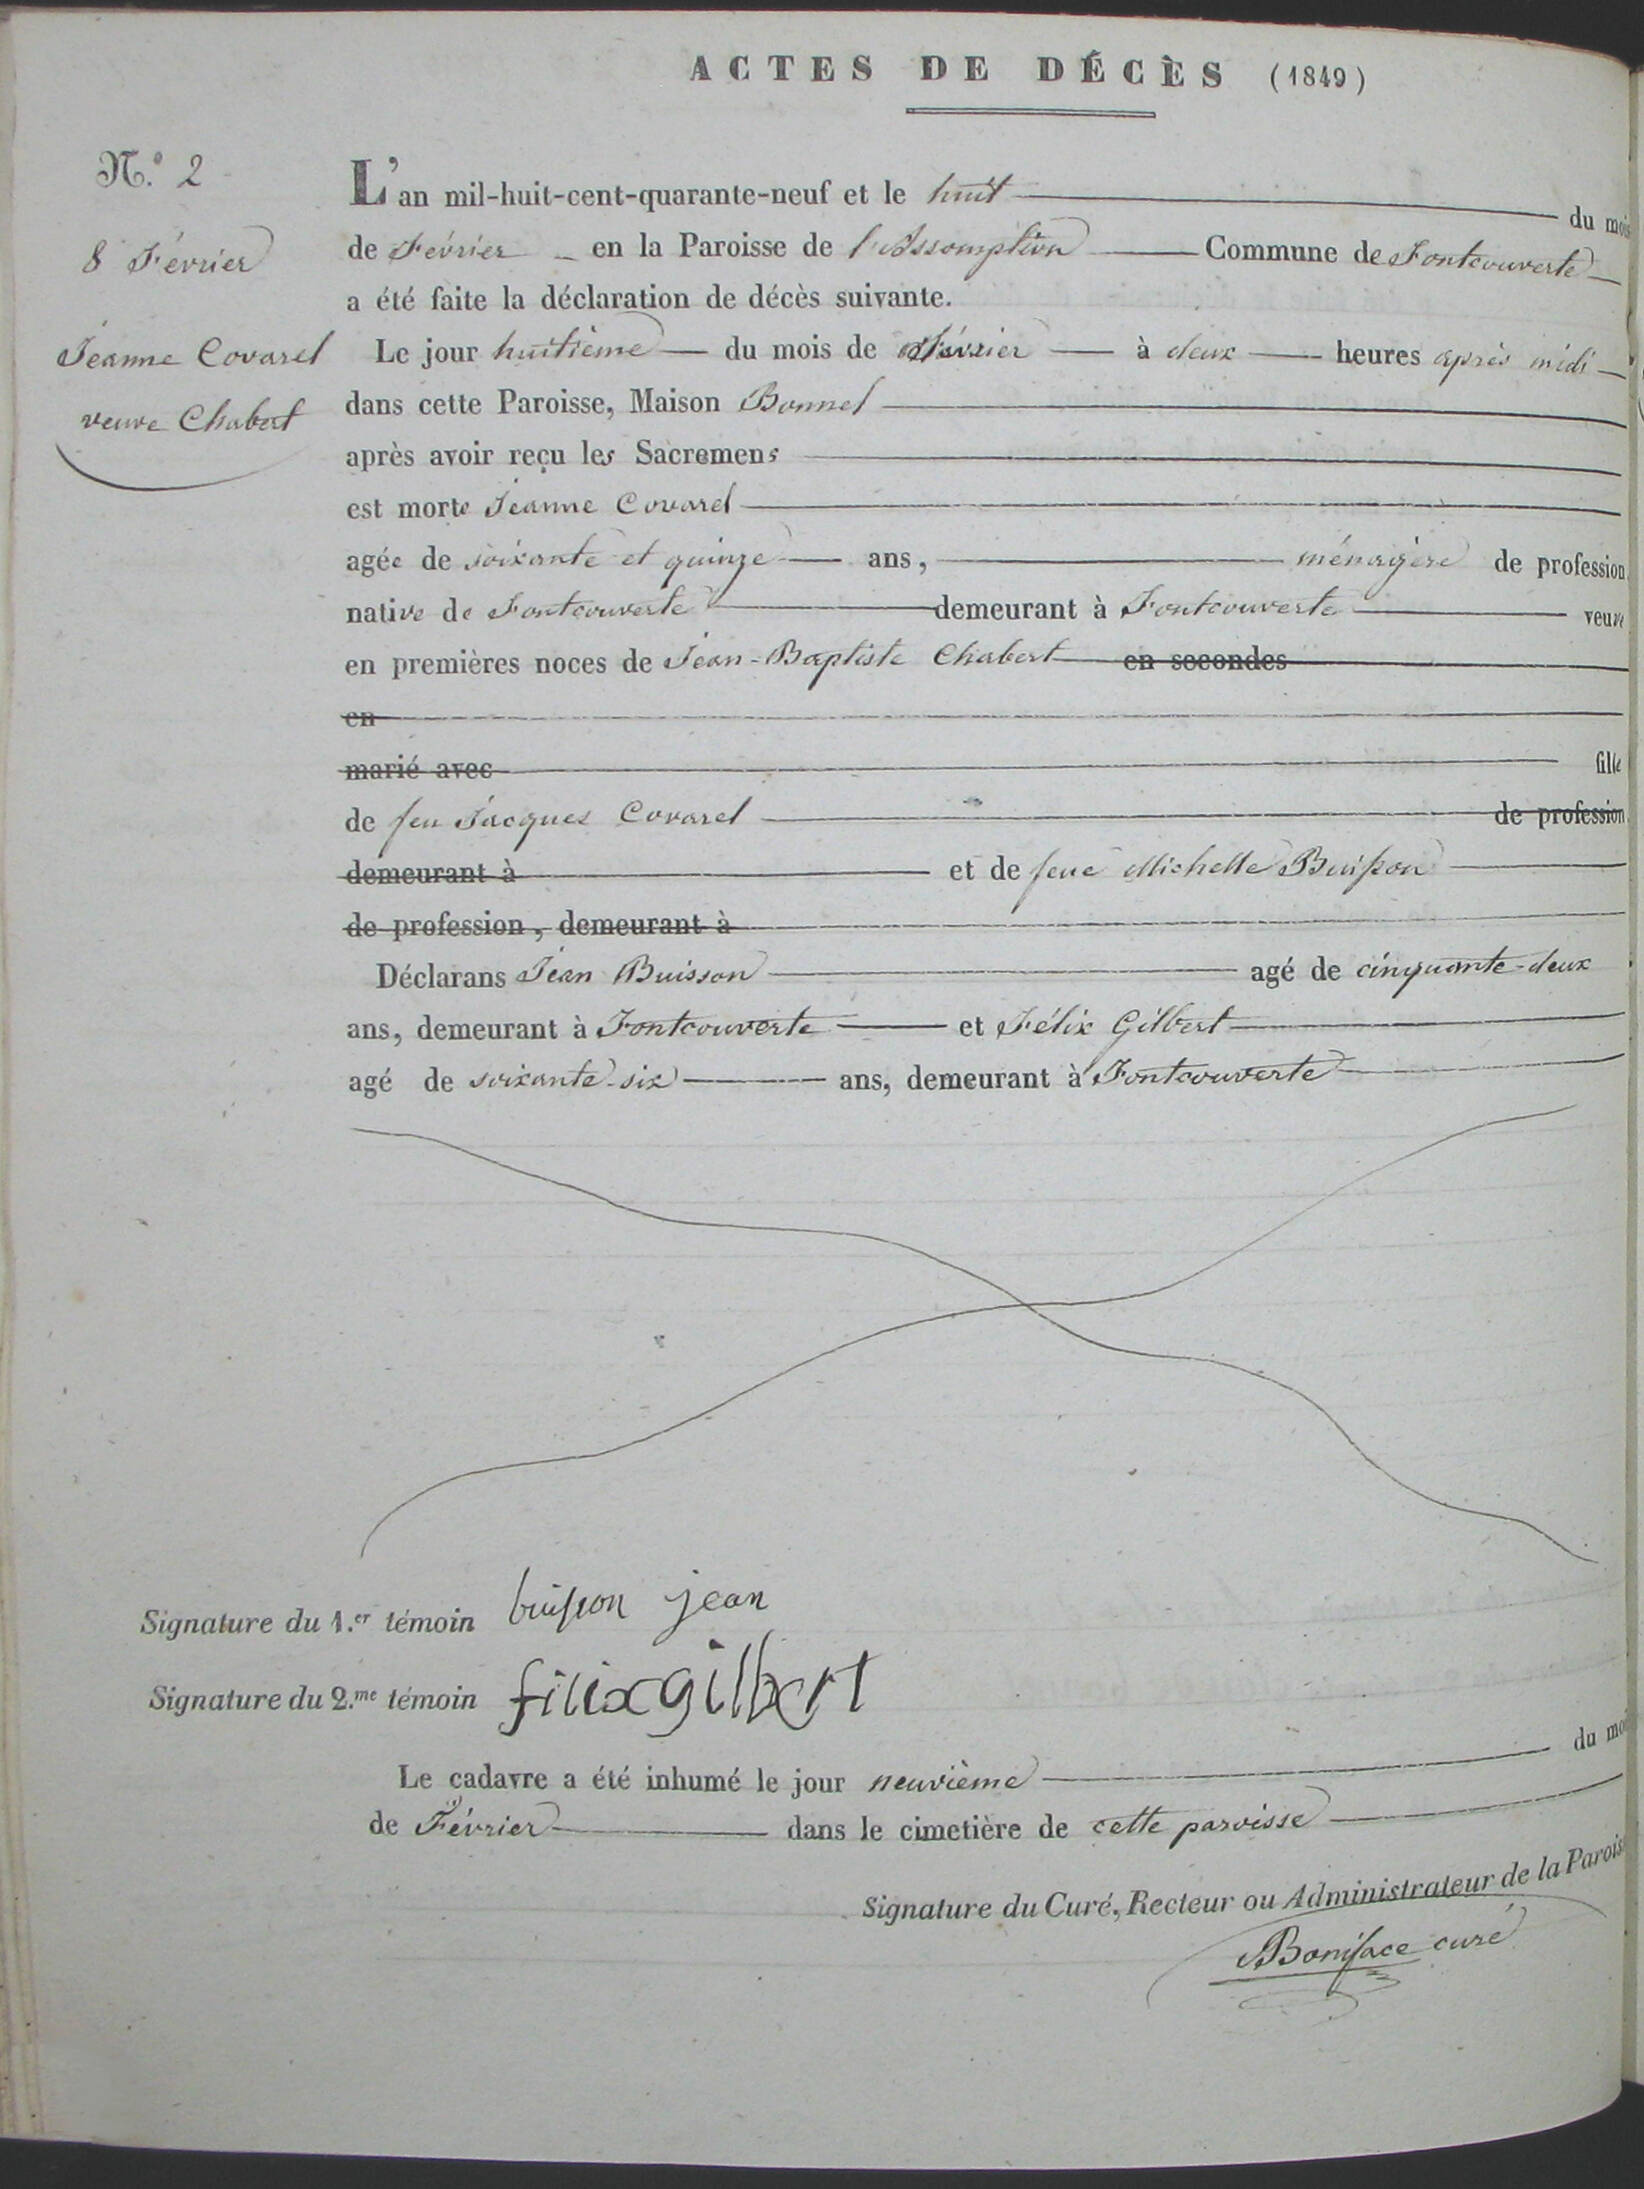 ACTES DE DÉCÈS (1849)
N.° 2
8 Février
Jeanne Covarel
veuve Chabert
L'an mil-huit-cent-quarante-neuf et le huit du mois
de Février en la Paroisse de l'Assomption Commune de Fontcouverte
a été faite la déclaration de décès suivante.
Le jour huitième du mois de Février à deux heures après midi
dans cette Paroisse, Maison Bonnel
après avoir reçu les Sacremens
est morte Jeanne Covarel
agée de soixante et quinze ans, ménagère de profession
native de Fontcouverte demeurant à Fontcouverte veuve
en premières noces de Jean-Baptiste Chabert en secondes
en
marié avec fille
de feu Jacques Covarel de profession
demeurant à et de feue Michelle Buisson
de profession, demeurant à
Déclarans Jean Buisson agé de cinquante-deux
ans, demeurant à Fontcouverte et Félix Gilbert
agé de soixante-six ans, demeurant à Fontcouverte
Signature du 1.er témoin buisson jean
Signature du 2.me témoin filix gilbert
Le cadavre a été inhumé le jour neuvième du moi
de Février dans le cimetière de cette paroisse
Signature du Curé, Recteur ou Administrateur de la Parois
Boniface curé